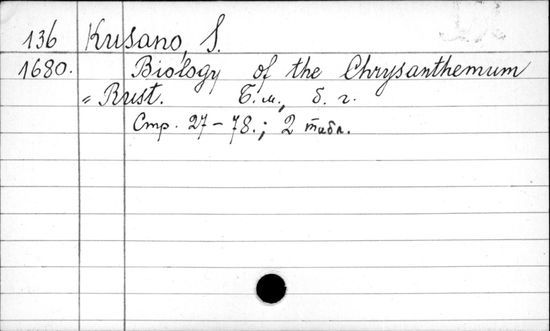 136 Kusano, S.
1680. Biology of the Chrysanthemum
= Rust. Б.м., б. г.
Стр. 27-78.; 2 табл.